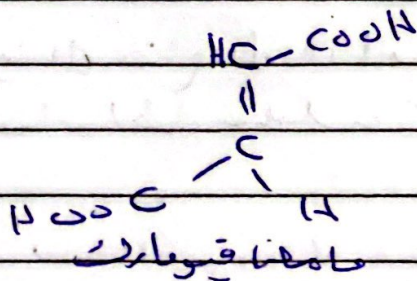 HC COOH
||
C
HOOC H
حامض فيوماريك